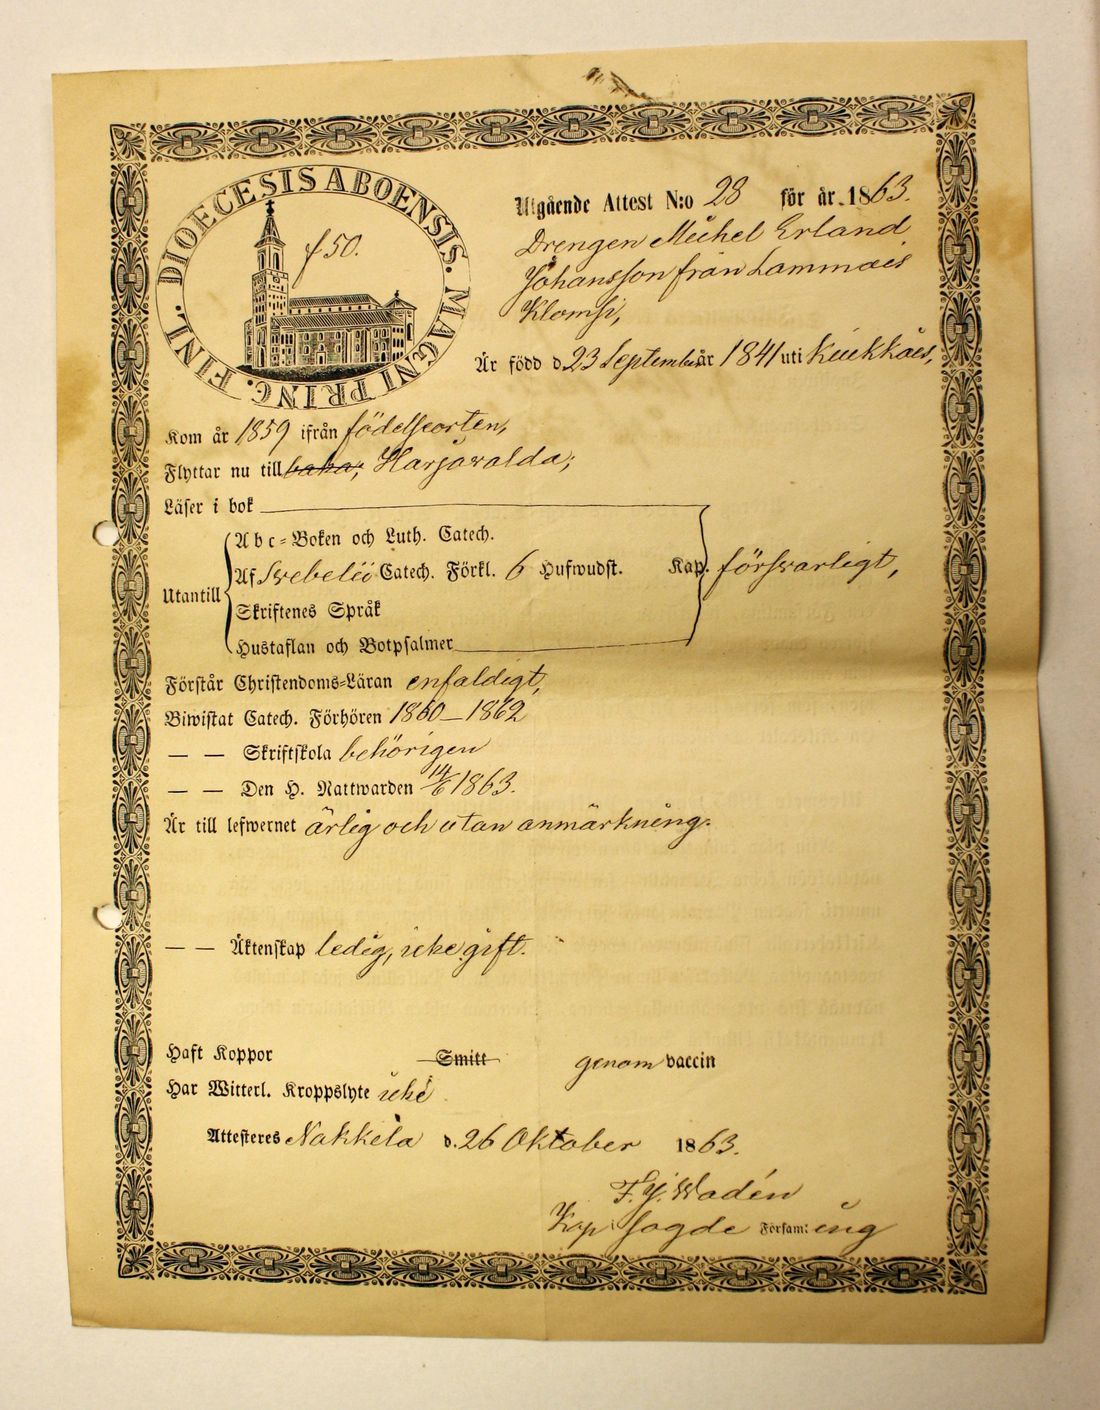 DIOECESIS ABOENSIS. MAGNI PRINC. FINL.
f 50.
Utgående Attest N:o 28 för år 1863.
Drengen Michel Erland
Johansson från Lammais
Klomsi,
Är född d 23 September år 1841 uti Kiukkais,
Kom år 1859 ifrån födelseorten,
Flyttar nu till Harjavalda;
Läser i bok
Abc-Boken och Luth. Catech.
Utantill Af Svebelii Catech. Förkl. 6 Hufwudst. Kap. försvarligt,
Skriftenes Språk
Hustaflan och Botpsalmer
Förstår Christendoms-Läran enfaldigt,
Biwistat Catech. Förhören 1860–1862
— — Skriftskola behörigen
— — Den H. Nattwarden 14/6 1863.
Är till lefwernet ärlig och utan anmärkning.
— — Äktenskap ledig, icke gift.
Haft Koppor Smitt genom vaccin
Har Witterl. Kroppslyte icke
Attesteres Nakkila d. 26 Oktober 1863.
F. J. Wadén
Kap. i sagde Försam: ing